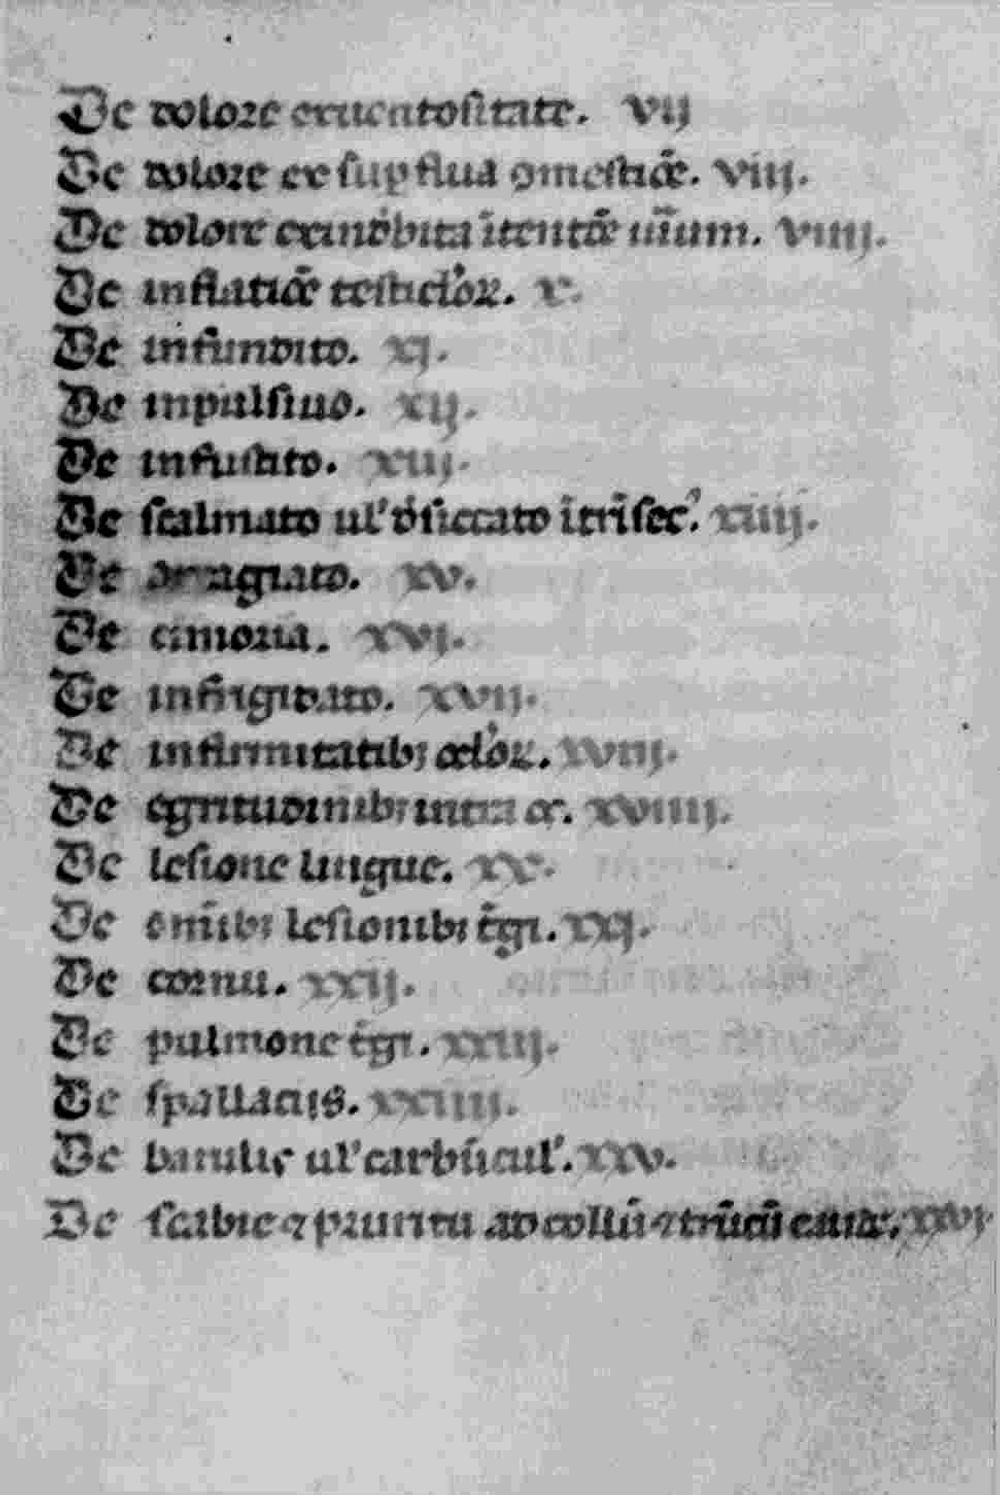 De dolore exuentositate. vij
De dolore ex supflua ꝯmestiōe. viij.
De dolore intentiōe viij. viiij.
De inflatiōe testiclo᷑ꝝ. x.
De infundito. xj.
De inpulsiuo. xij.
De infustito. xiij.
De scalmato ul' d̓siccato ītrīsec᷒. xiiij.
De arragiato. xv.
De cimoria. xvi.
De infrigidato. xvij.
De infirmitatibꝫ oclo᷑ꝝ. xviij.
De egritudinibꝫ intra os. xviiij.
De lesione lingue. xx.
De omībꝫ lesionibꝫ t̄gi. xxj.
De cornu. xxij.
De pulmone t̄gi. xxiij.
De spallacijs. xxiiij.
De barulis ul' carbūcul'. xxv.
De scabie ⁊ pruritu collū ⁊ caude. xxvj